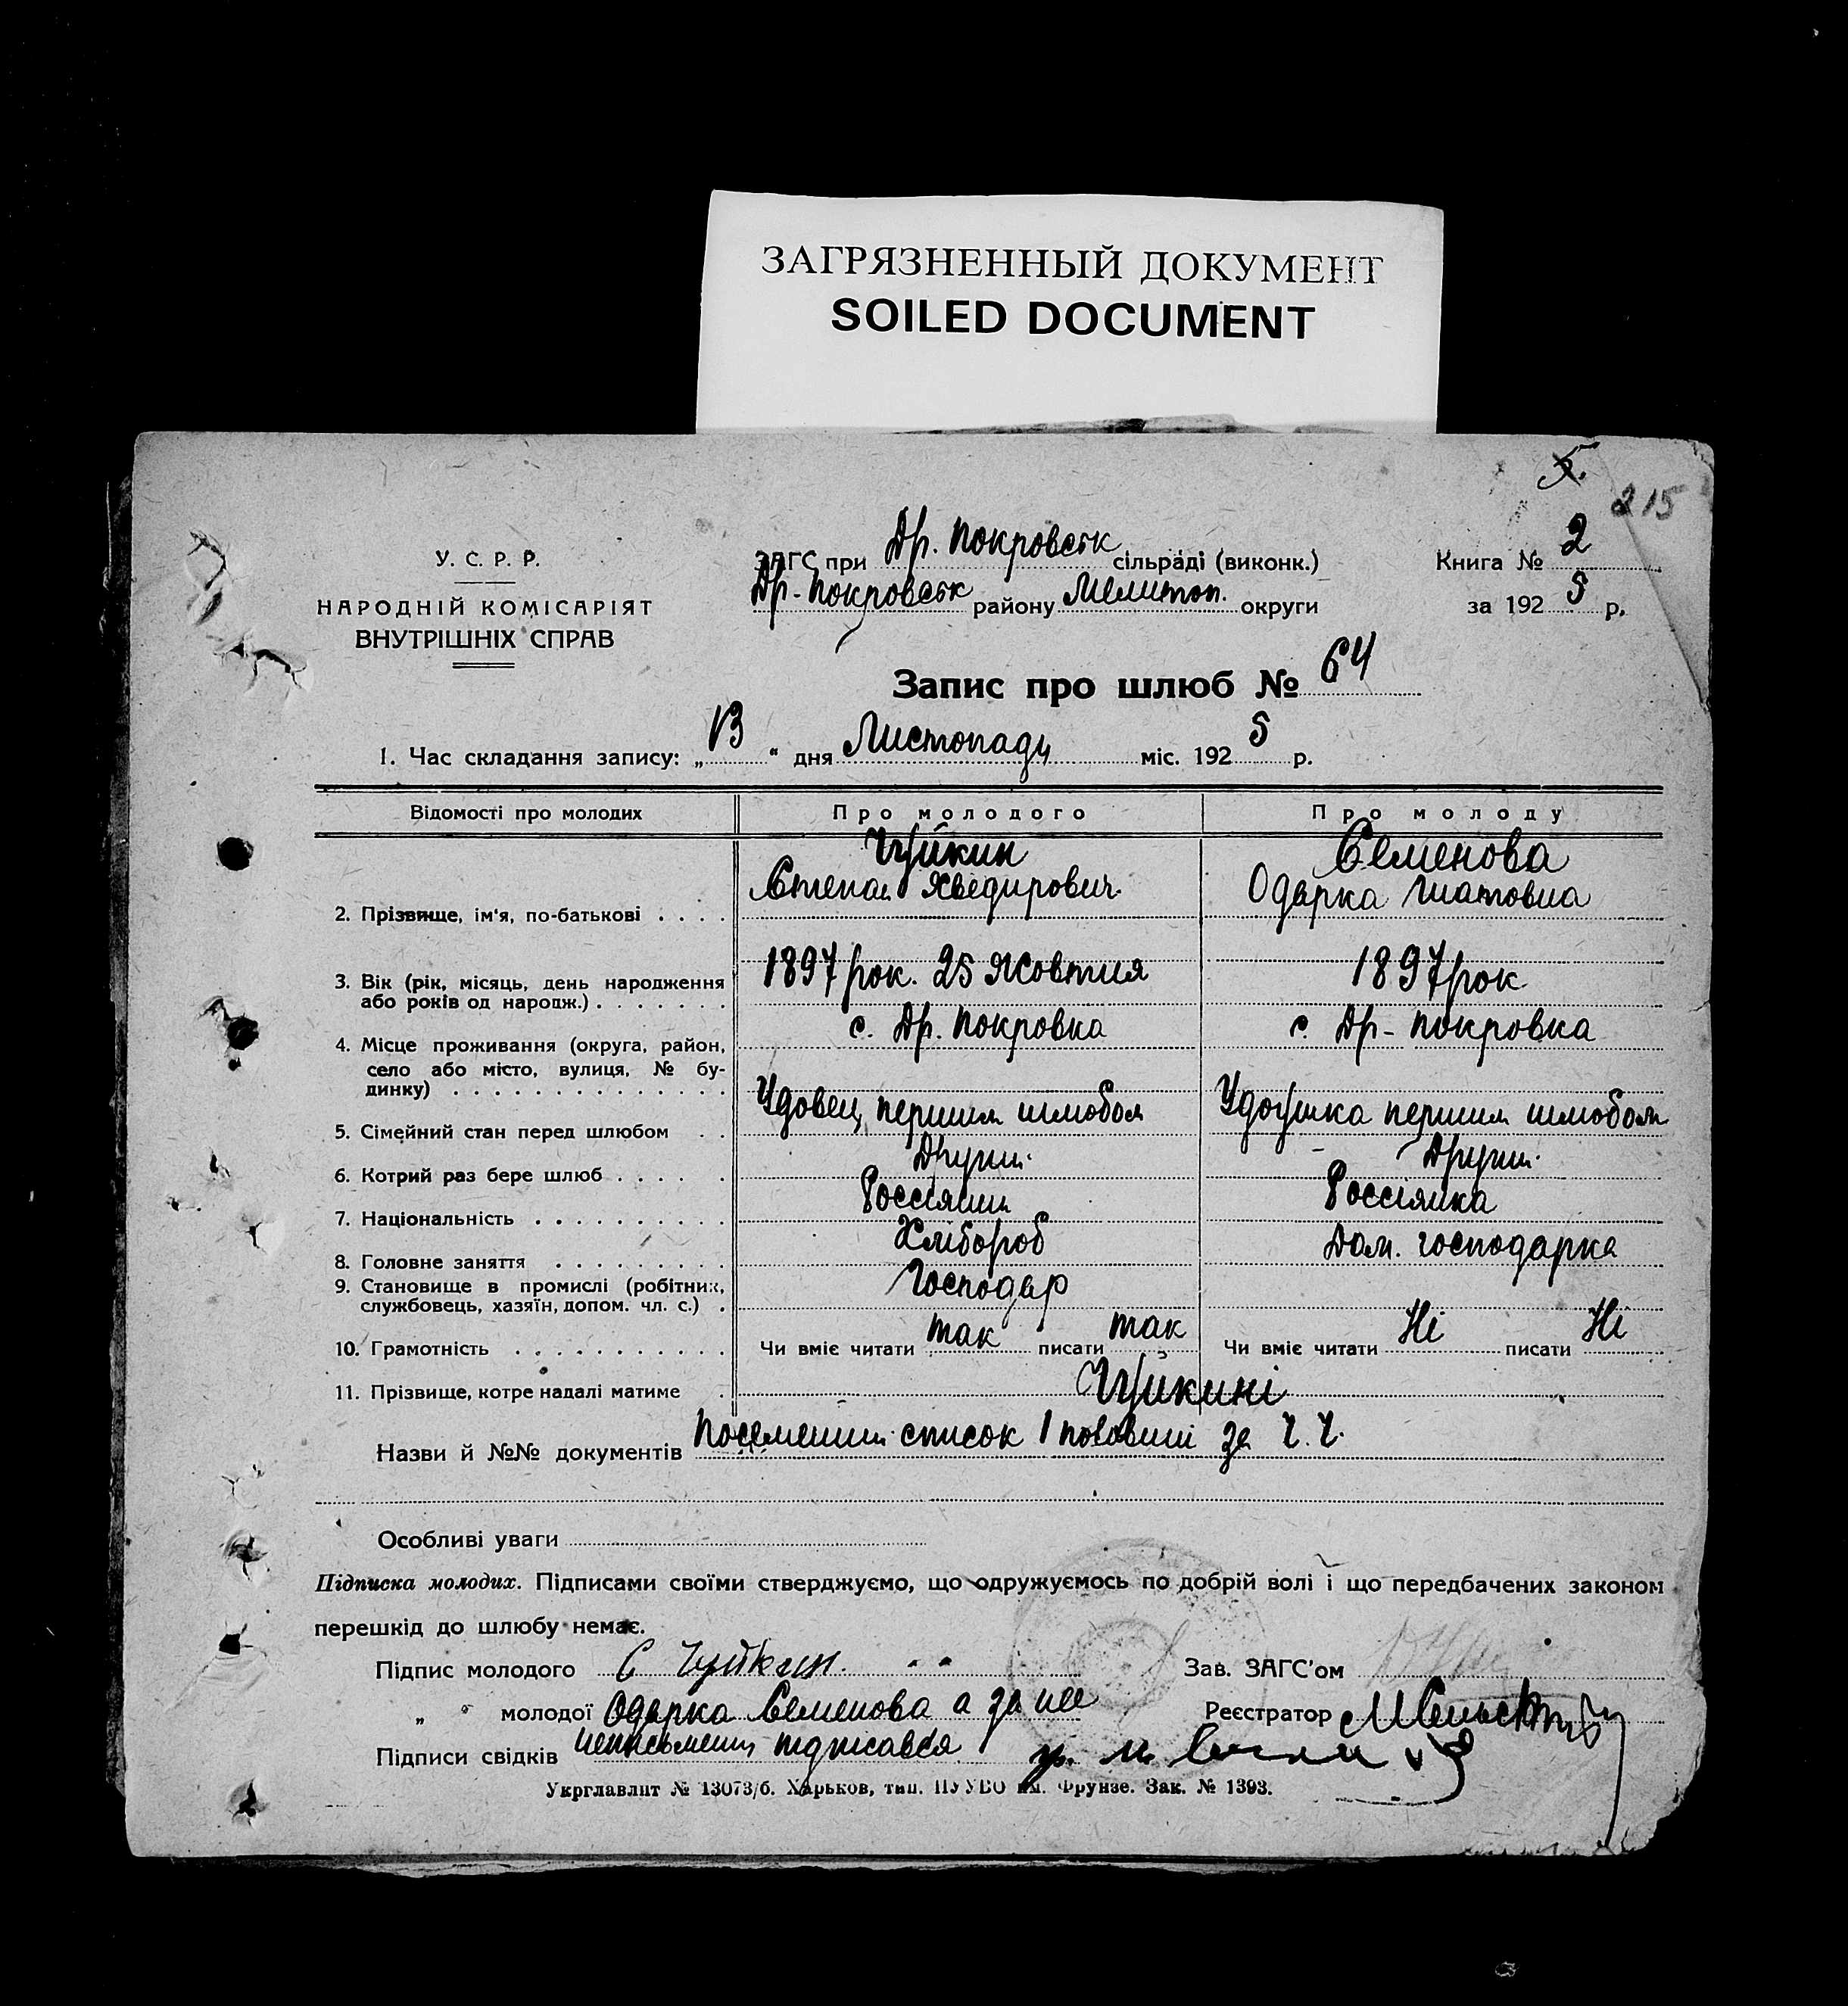 ЗАГРЯЗНЕННЫЙ ДОКУМЕНТ
SOILED DOCUMENT
215
У. С. Р. Р.
НАРОДНІЙ КОМІСАРІЯТ
ВНУТРІШНІХ СПРАВ
ЗАГС при Др. Покровськ сільраді (виконк.)
Др-Покровськ району Мелитоп. округи
Книга № 2
за 1925 р.
Запис про шлюб № 64
1. Час складання запису: „13“ дня Листопаду міс. 1925 р.
Відомості про молодих Про молодого Про молоду
Чуйкин Семенова
2. Прізвище, ім'я, по-батькові . . . . Степан Хведирович Одарка Гнатовна
3. Вік (рік, місяць, день народження 1897 рок. 25 Жовтня 1897 рок
або років од народж.) . . . . . . .
4. Місце проживання (округа, район, с. Др. Покровка с. Др-Покровка
село або місто, вулиця, № бу-
динку) . . . . . . . . . . . . . .
5. Сімейний стан перед шлюбом . . Удовец першим шлюбом Удовушка першим шлюбом
6. Котрий раз бере шлюб . . . . . Другий. Другий.
7. Національність . . . . . . . . . . Россіянин Россіянка
8. Головне заняття . . . . . . . . . Хлібороб Дом. господарка
9. Становище в промислі (робітник, Господар
службовець, хазяїн, допом. чл. с.) .
10. Грамотність . . . . . . . . . . . Чи вміє читати так писати так Чи вміє читати Ні писати Ні
11. Прізвище, котре надалі матиме . Чуйкині
Назви й №№ документів Посемейний список 1 половини за Ч. Ч.
Особливі уваги
Підписка молодих. Підписами своїми стверджуємо, що одружуємось по добрій волі і що передбачених законом
перешкід до шлюбу немає.
Підпис молодого С Чуйкин. Зав. ЗАГС'ом
„ „ молодої Одарка Семенова а за неє Реєстратор
Підписи свідків неписьмену підписався
Укрглавлит № 13073/б. Харьков, тип. ПУУВО им. Фрунзе. Зак. № 1393.